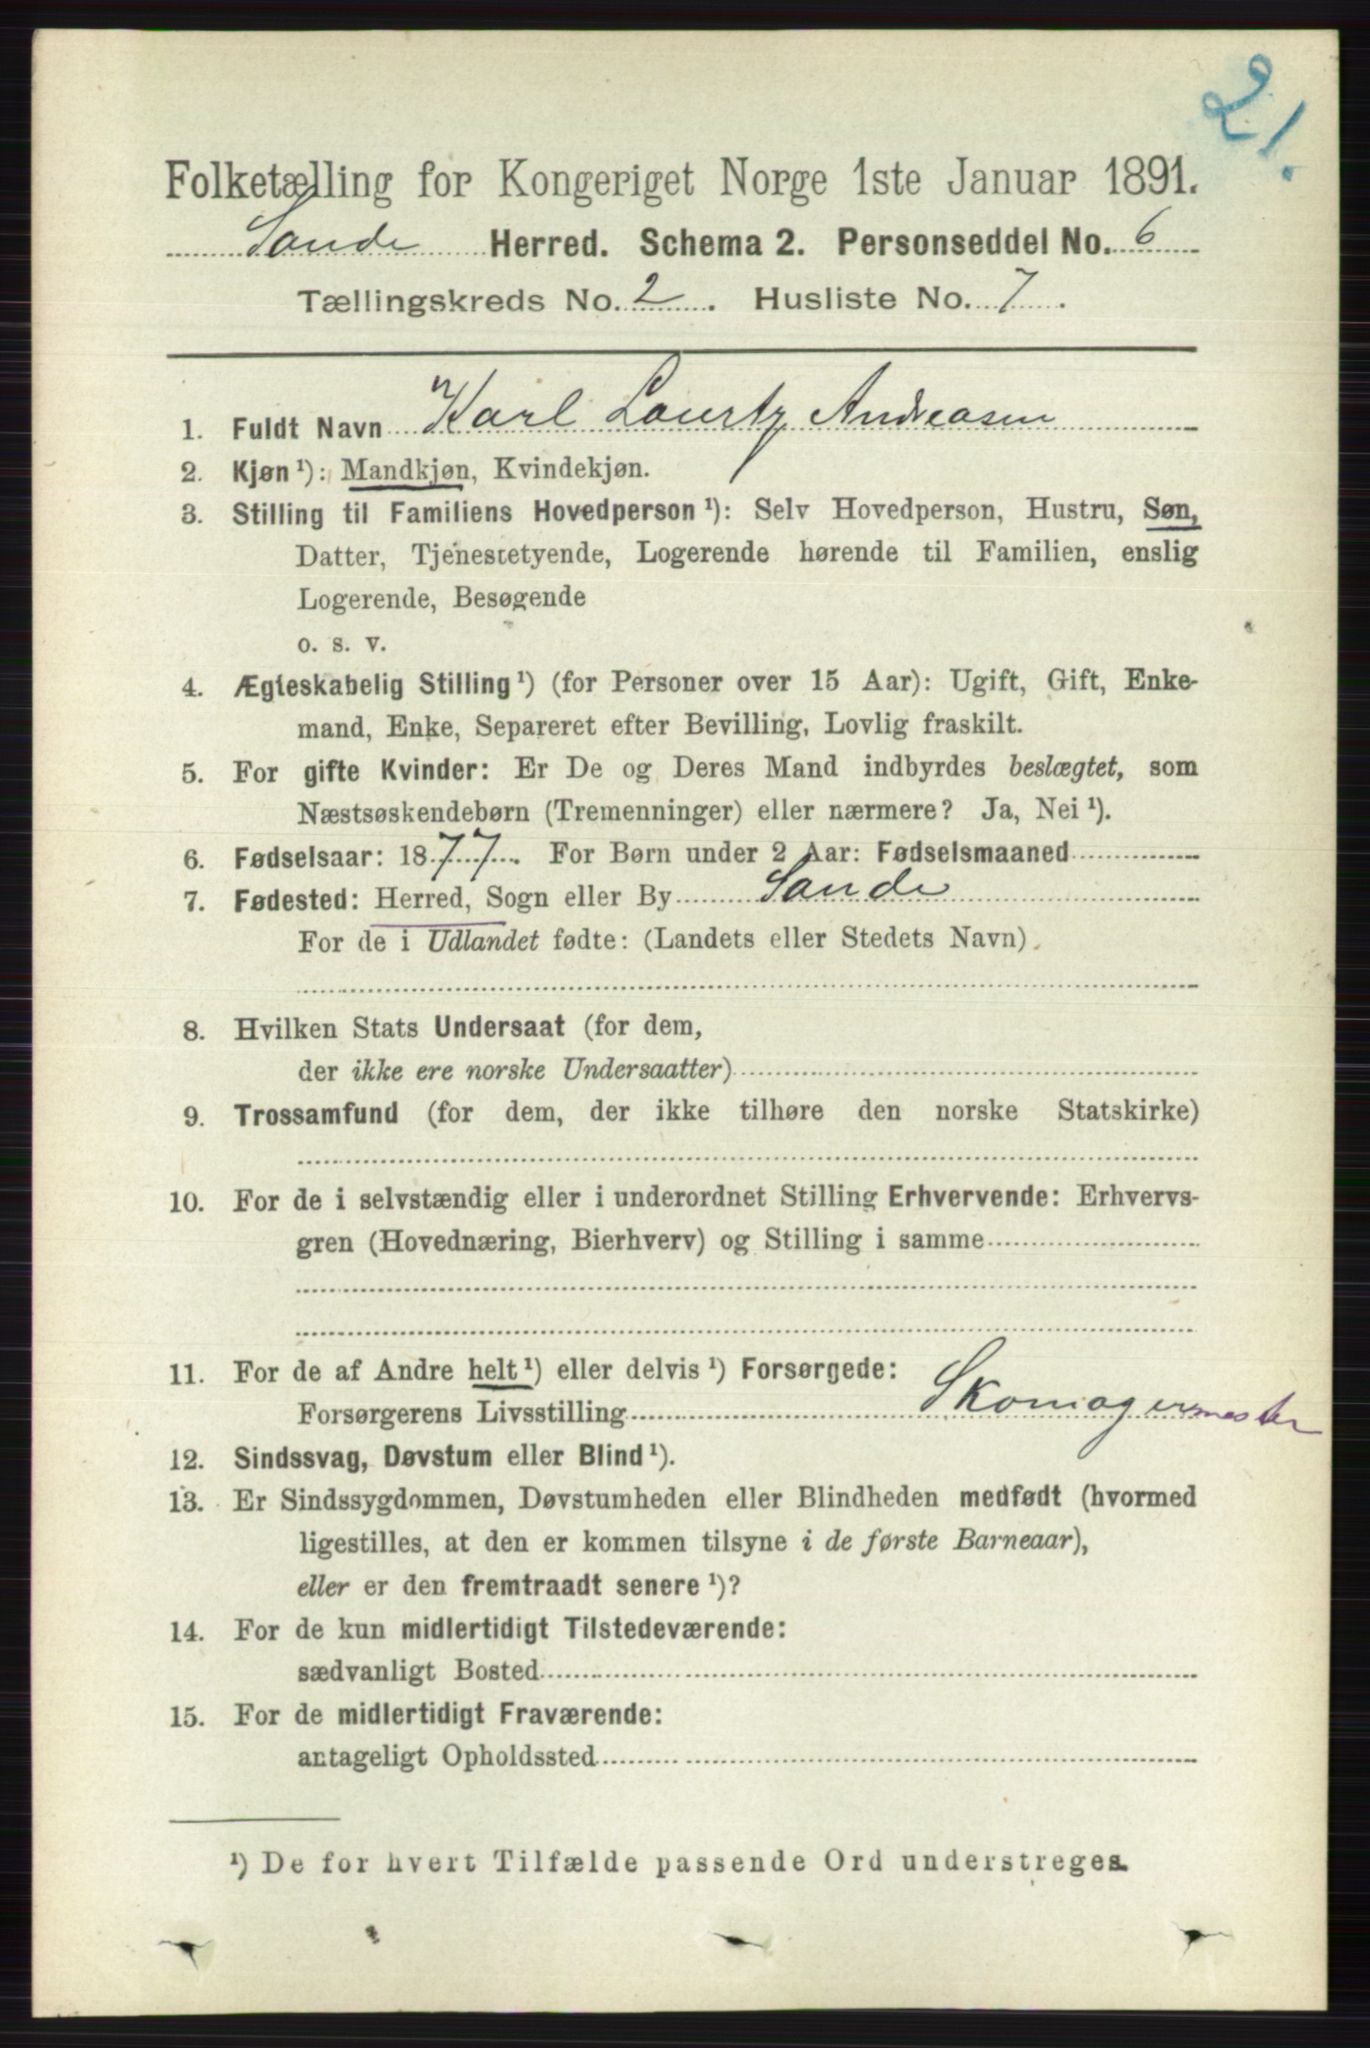 21.
Folketælling for Kongeriget Norge 1ste Januar 1891.
Sande Herred. Schema 2. Personseddel No. 6
Tællingskreds No. 2. Husliste No. 7.
1. Fuldt Navn Karl Lauritz Andreasen
2. Kjøn ¹): Mandkjøn, Kvindekjøn.
3. Stilling til Familiens Hovedperson ¹): Selv Hovedperson, Hustru, Søn,
Datter, Tjenestetyende, Logerende hørende til Familien, enslig
Logerende, Besøgende
o. s. v.
4. Ægteskabelig Stilling ¹) (for Personer over 15 Aar): Ugift, Gift, Enke-
mand, Enke, Separeret efter Bevilling, Lovlig fraskilt.
5. For gifte Kvinder: Er De og Deres Mand indbyrdes beslægtet, som
Næstsøskendebørn (Tremenninger) eller nærmere? Ja, Nei ¹).
6. Fødselsaar: 1877. For Børn under 2 Aar: Fødselsmaaned
7. Fødested: Herred, Sogn eller By Sande
For de i Udlandet fødte: (Landets eller Stedets Navn)
8. Hvilken Stats Undersaat (for dem,
der ikke ere norske Undersaatter)
9. Trossamfund (for dem, der ikke tilhøre den norske Statskirke)
10. For de i selvstændig eller i underordnet Stilling Erhvervende: Erhvervs-
gren (Hovednæring, Bierhverv) og Stilling i samme
11. For de af Andre helt ¹) eller delvis ¹) Forsørgede:
Forsørgerens Livsstilling Skomagermester
12. Sindssvag, Døvstum eller Blind ¹).
13. Er Sindssygdommen, Døvstumheden eller Blindheden medfødt (hvormed
ligestilles, at den er kommen tilsyne i de første Barneaar),
eller er den fremtraadt senere ¹)?
14. For de kun midlertidigt Tilstedeværende:
sædvanligt Bosted
15. For de midlertidigt Fraværende:
antageligt Opholdssted
¹) De for hvert Tilfælde passende Ord understreges.